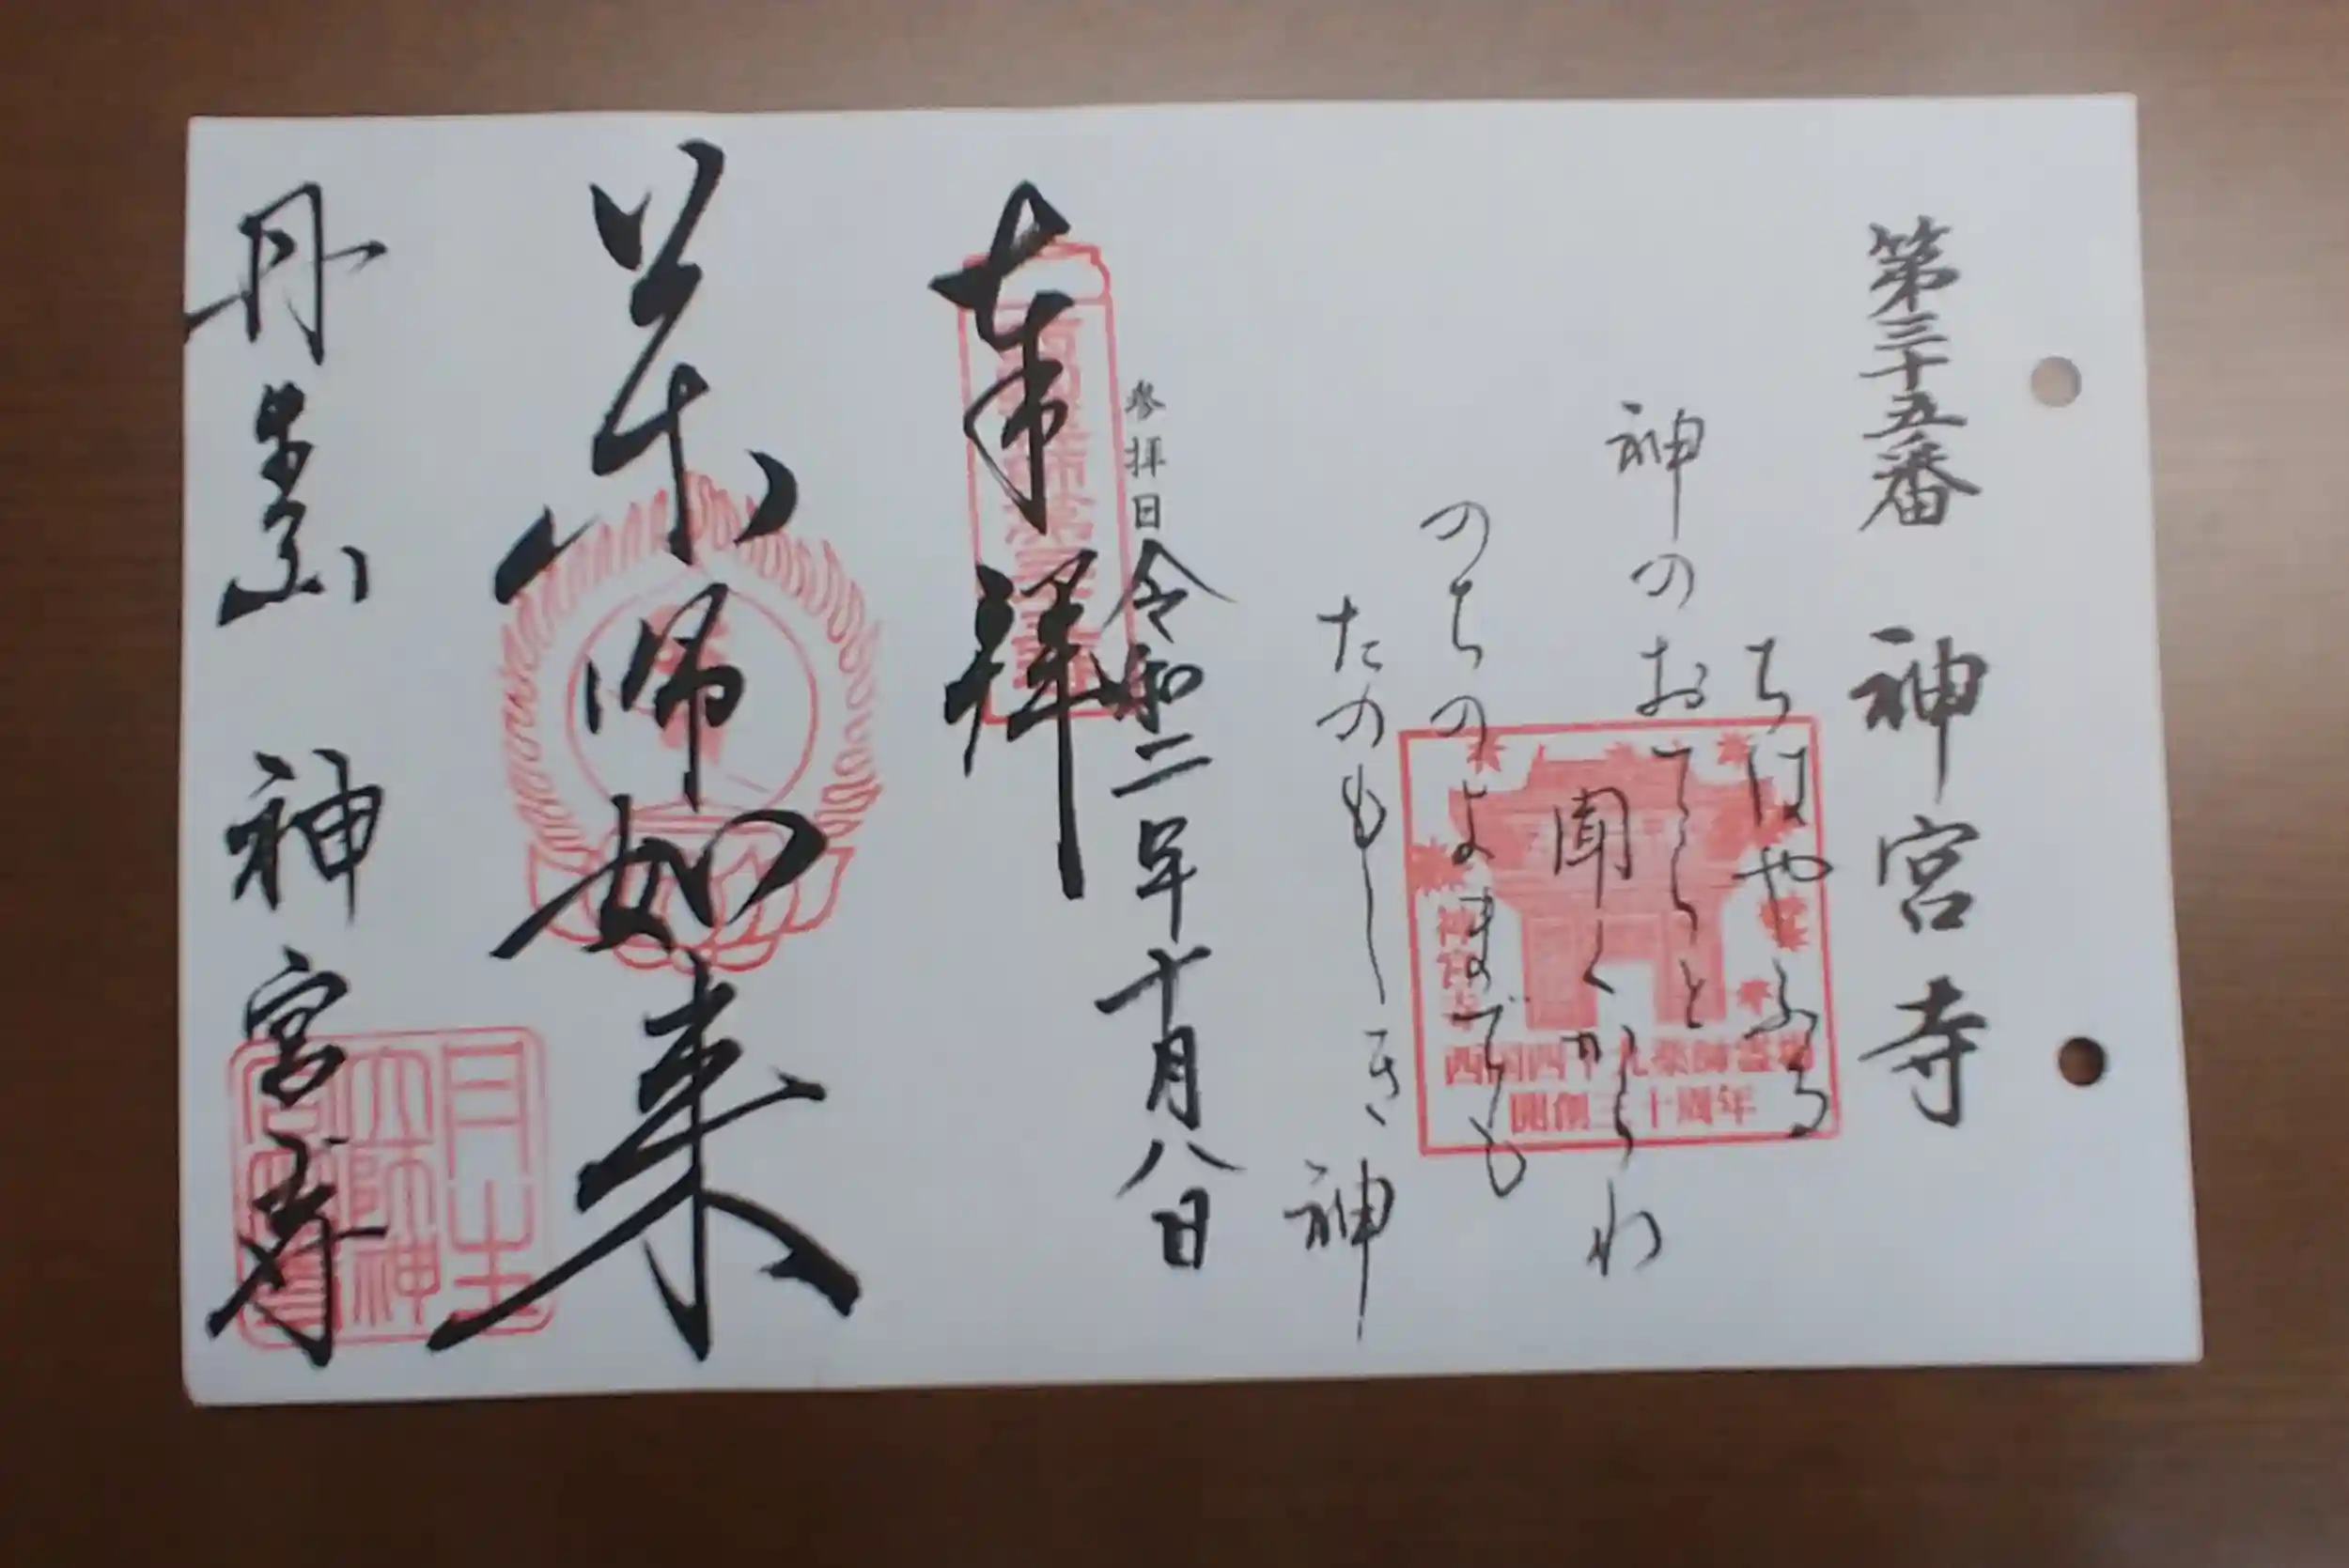 第三十五番 神宮寺
ちはやふる
神のおてらと
聞くからわ
のちのよまでも
たのもしき神
参拝日 令和二年十月八日
奉拝
薬師如来
丹生山 神宮寺
神宮寺
西国四十九薬師霊場
開創三十周年